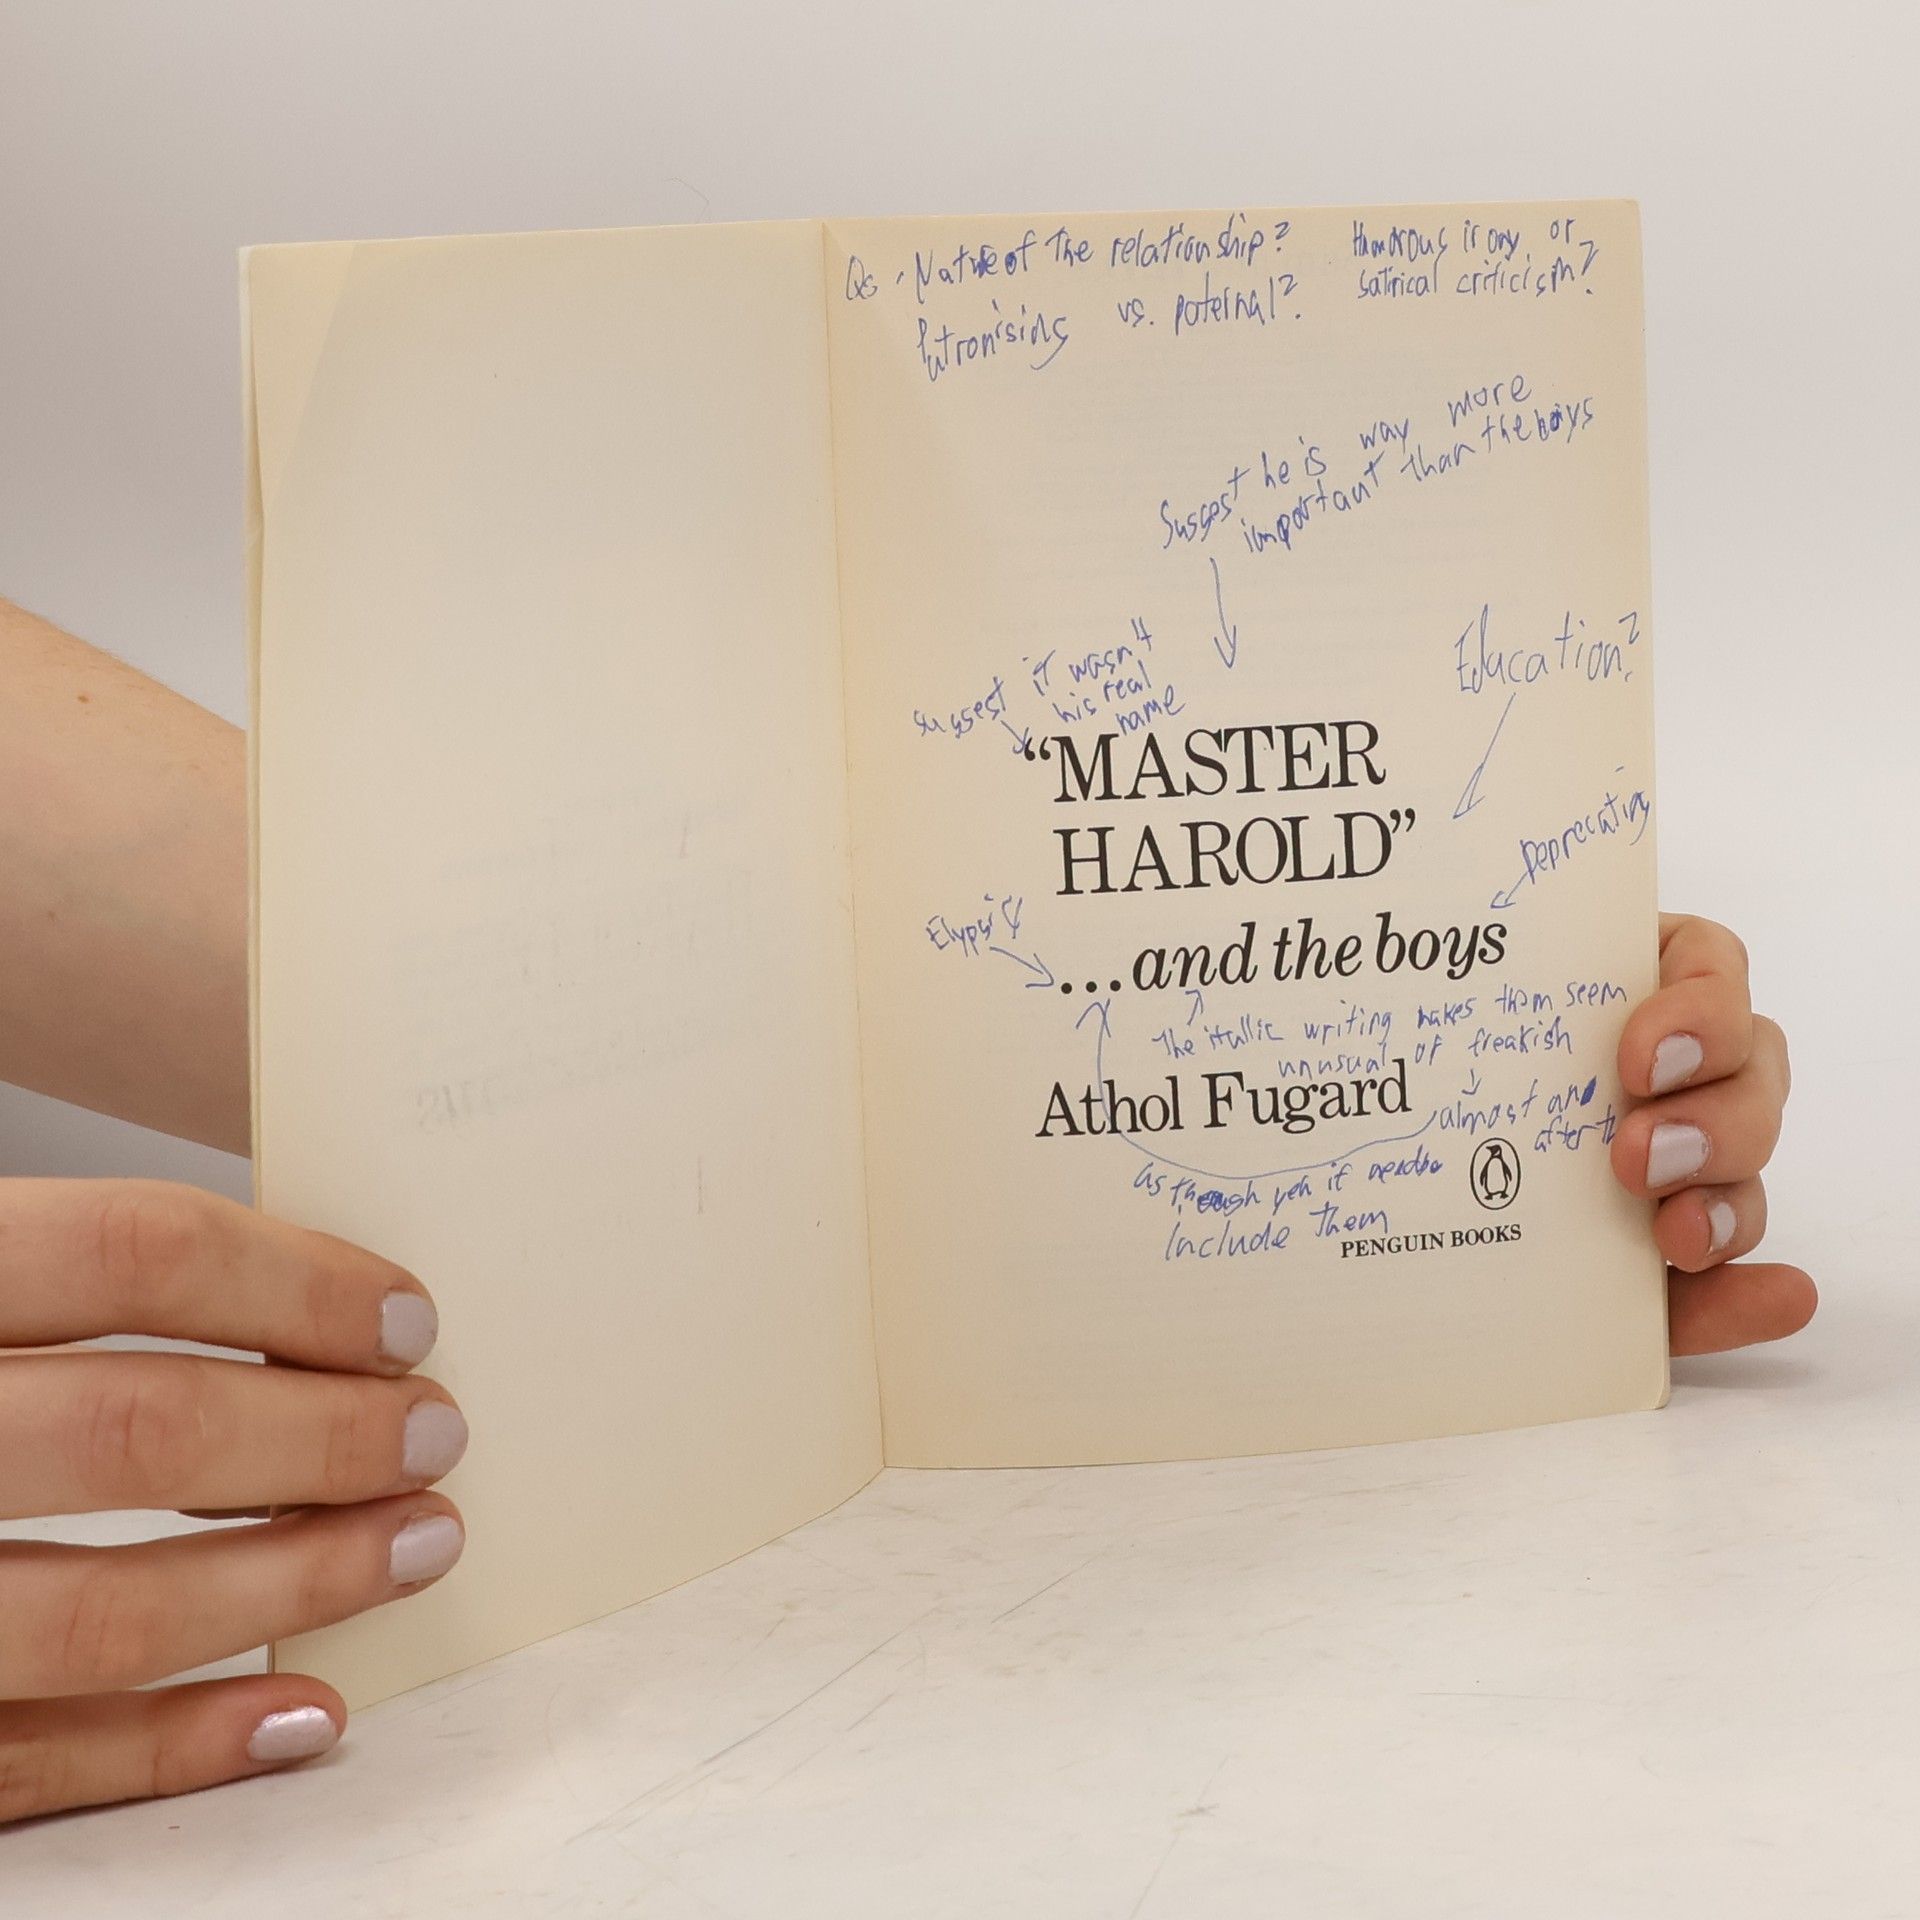 Qs. Nature of the relationship?
Patronising vs. paternal?
Humorous irony or
satirical criticism?
Suggest he is way more
important than the boys
Suggest it wasn't
his real
name
Education?
"MASTER
HAROLD"
Depreciating
Elypsis
...and the boys
The itallic writing makes them seem
unusual of freakish
Athol Fugard
almost an
after
as though yeh if needbe
include them
PENGUIN BOOKS